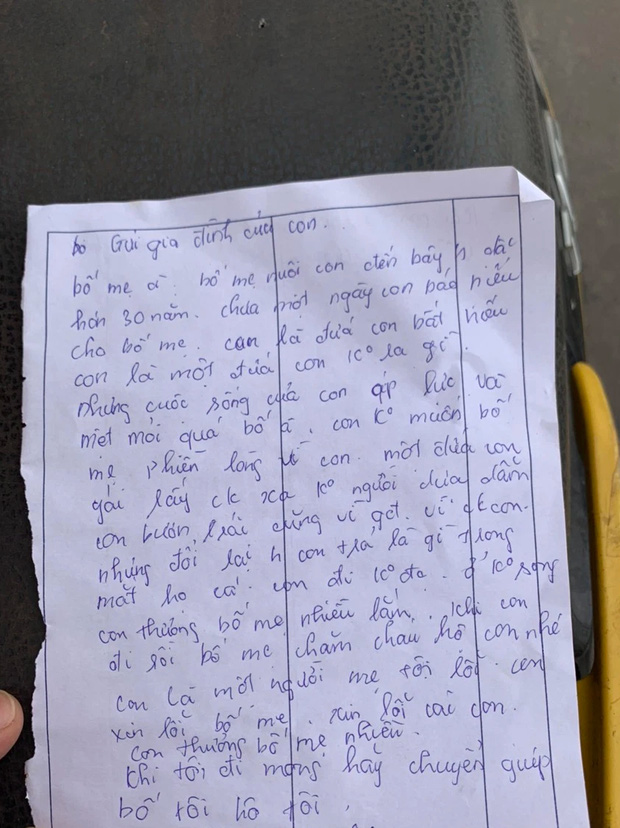 bo Gửi gia đình của con.
bố mẹ à bố mẹ nuôi con đến bây h đã
hơn 30 năm. chưa một ngày con báo hiếu
cho bố mẹ. con là đứa con bất hiếu
con là một đứa con k° ra gì.
nhưng cuộc sống của con áp lực và
mệt mỏi quá bố ạ, con k° muốn bố
mẹ phiền lòng về con. một đứa con
gái lấy ck xa k° người đưa
con buôn trái cũng vì vì ck con.
nhưng đổi lại h con trả là gì trong
mắt họ cả. con đi k° đc. ở k° song
con thương bố mẹ nhiều lắm. khi con
đi rồi bố mẹ chăm cháu hộ con nhé
con là một người mẹ tồi lỗi. con
xin lỗi bố mẹ. xin lỗi các con.
con thương bố mẹ nhiều.
khi tôi đi mong hãy chuyển giúp
bố tôi hộ tôi,